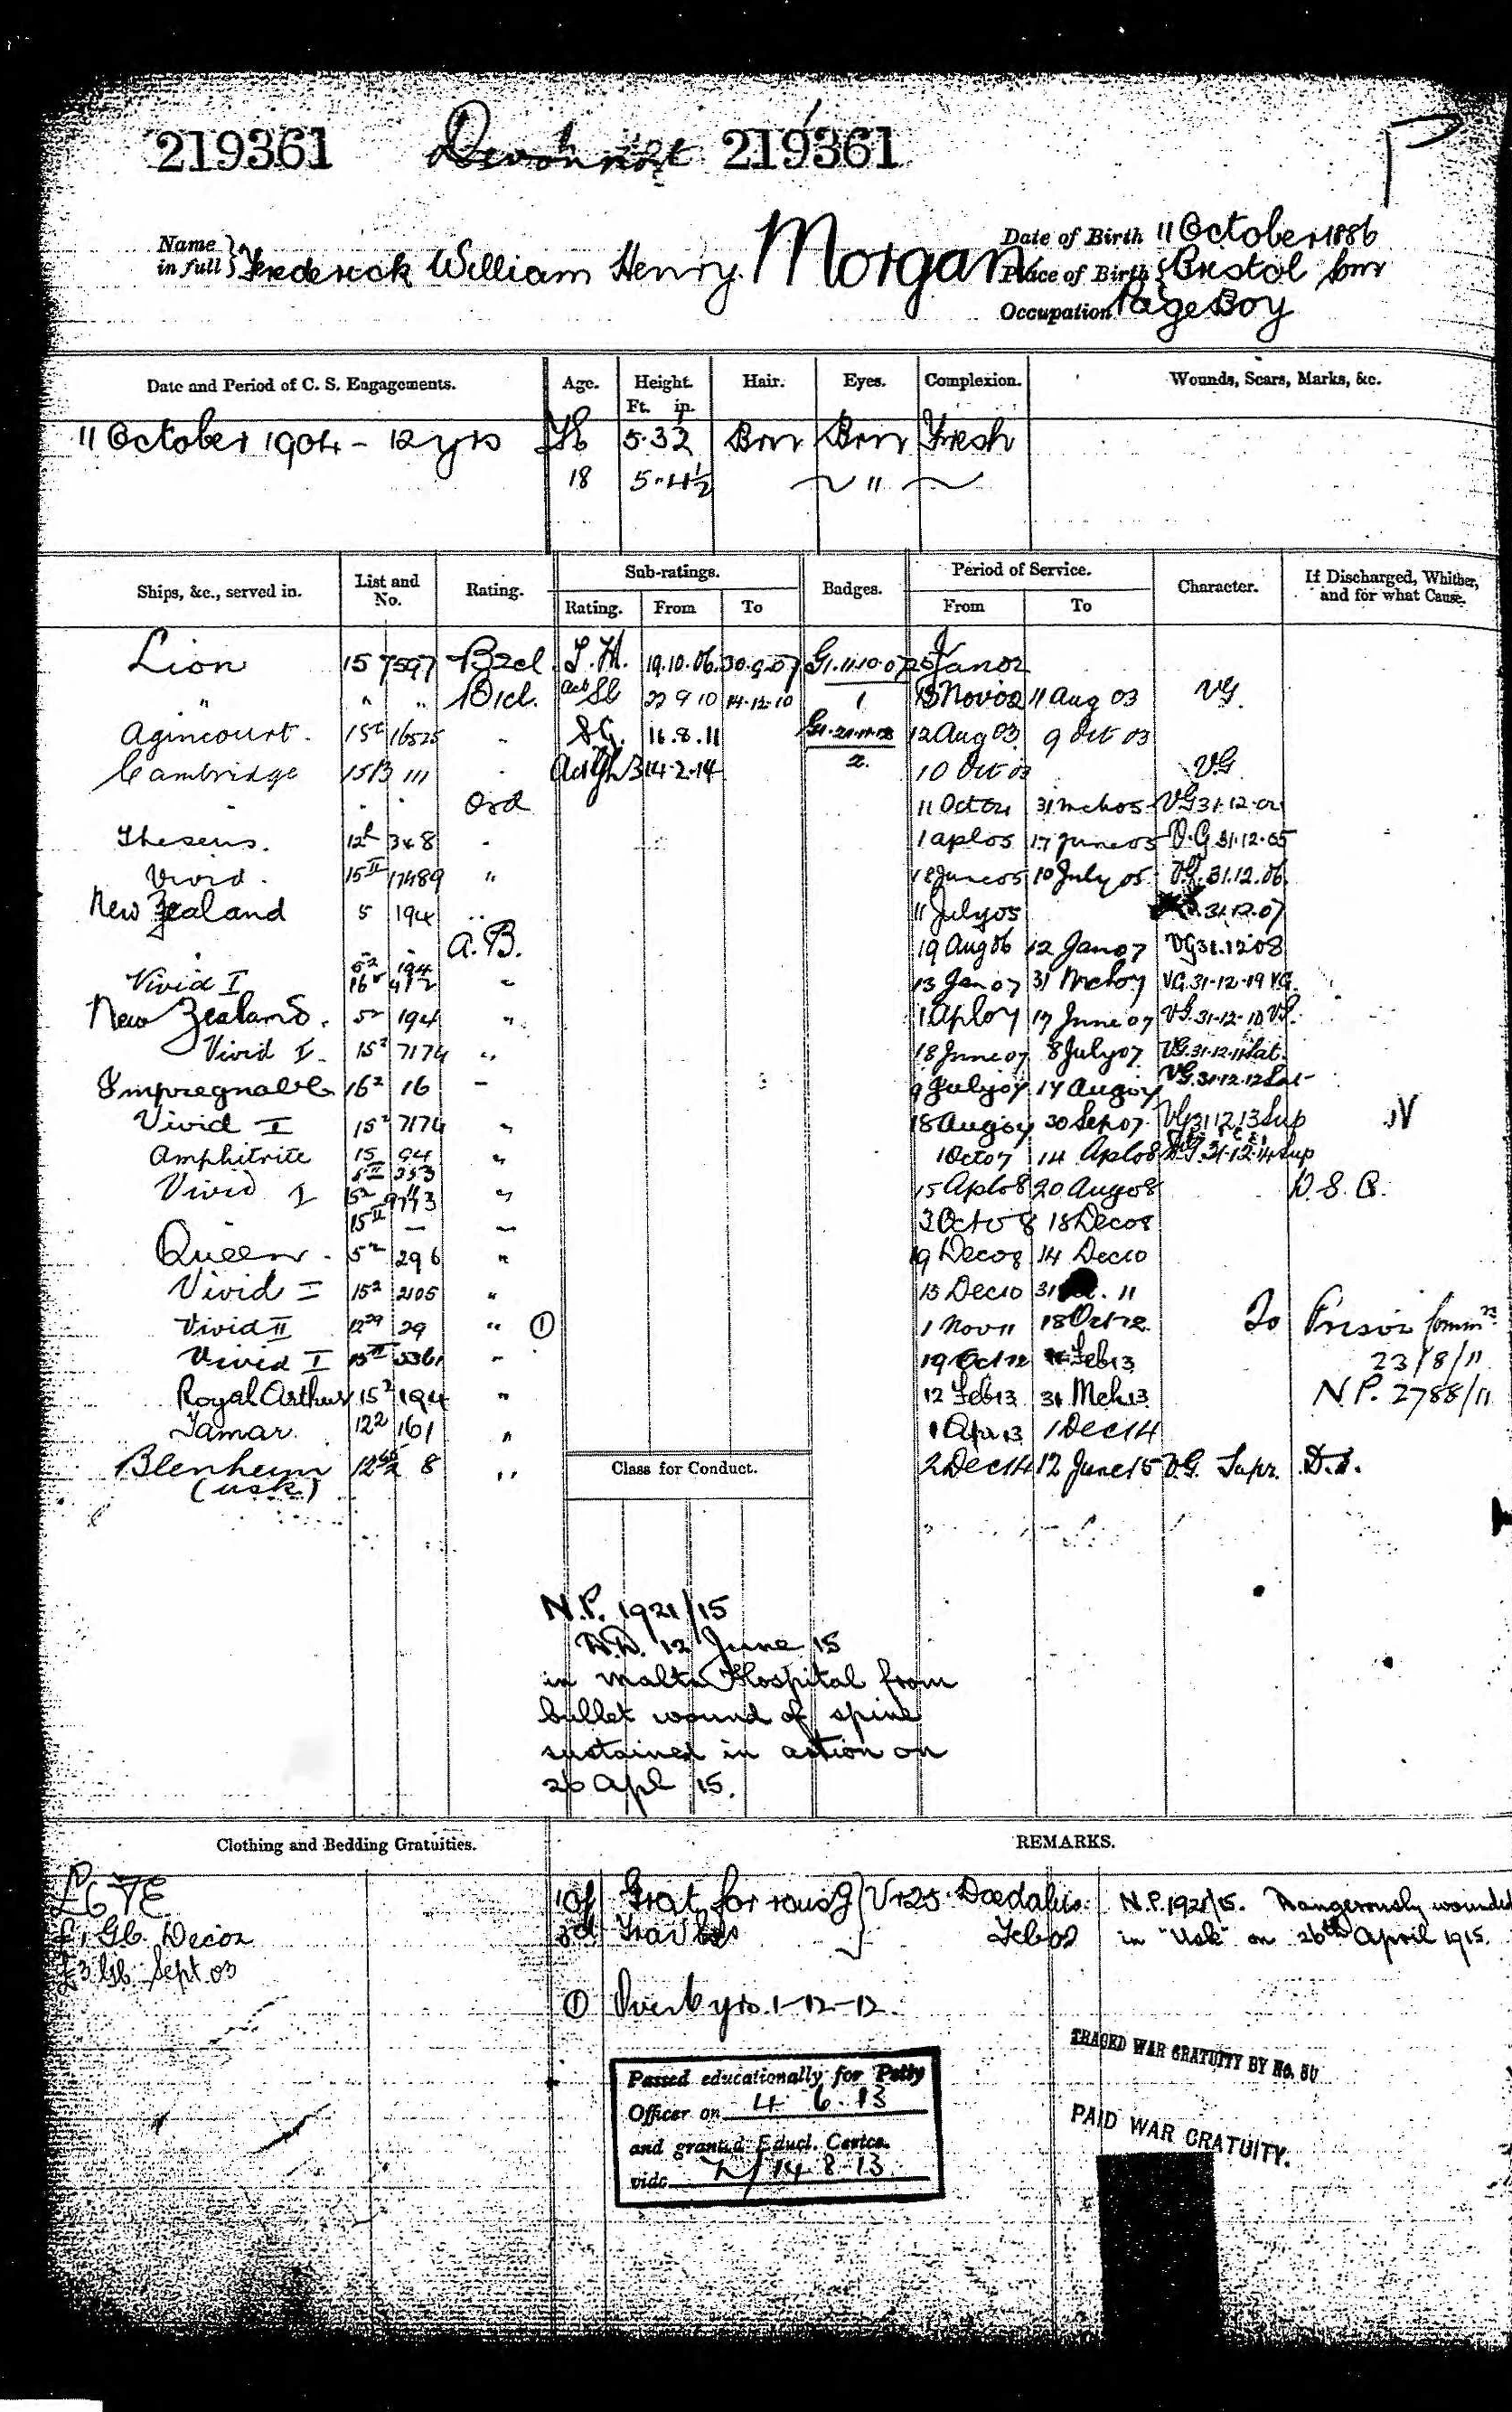 219361 Devonport 219361
Name in full } Frederick William Henry Morgan
Date of Birth 11 October 1886
Place of Birth } Bristol Som
Occupation Page Boy
Date and Period of C. S. Engagements. Age. Height. Ft. in. Hair. Eyes. Complexion. Wounds, Scars, Marks, &c.
11 October 1904 - 12 yrs 5·3½ Brn Brn Fresh
18 5·4½ "
Ships, &c., served in. List and No. Rating. Sub-ratings. Badges. Period of Service. Character. If Discharged, Whither, and for what Cause.
Rating. From To From To
Lion 15 7597 B2cl. S.G. 19.10.06 30.9.07 G1.11.10.07 Jan 02
" " " B1cl. Act SG 22 9 10 14.12.10 1 Nov 02 11 Aug 03 VG.
Agincourt. 15² 16525 " S.G. 16.8.11 12 Aug 03 9 Oct 03
Cambridge 15B 111 " 14.2.14 2. 10 Oct 03 VG
" " " Ord 11 Oct 04 31 Mch 05 VG 31.12.04
Theseus. 12 348 " 1 Apl 05 17 June 05 V.G 31.12.05
Vivid. 15II 17489 " 18 June 05 10 July 05 VG. 31.12.06
New Zealand 5 194 " 11 July 05 31.12.07
" A.B. 19 Aug 06 12 Jan 07 VG 31.12.08
Vivid I " 13 Jan 07 31 Mch 07 VG. 31.12.09 VG.
New Zealand. 5² 194 " 1 Apl 07 17 June 07 VG. 31.12.10 VG.
Vivid I. 15² 7174 " 18 June 07 8 July 07 VG. 31.12.11 Sat.
Impregnable 16² 16 - 9 July 07 17 Aug 07 VG. 31.12.12 Sat
Vivid I 15² 7174 " 18 Aug 07 30 Sep 07 VG 31.12.13 Sup
Amphitrite 15 94 " 1 Oct 07 14 Apl 08 V.G. 31.12.14 Sup
Vivid I 15² " 15 Apl 08 20 Aug 08 D.S.Q.
15II - - 3 Oct 08 18 Dec 08
Queen. 5² 296 " 19 Dec 08 14 Dec 10
Vivid I 15² 2105 " 15 Dec 10 31 11
Vivid II 29 " ① 1 Nov 11 18 Oct 12 To Prison Commrs
Vivid I 15II 5361 " 19 Oct 12 Feb 13 23/8/11
Royal Arthur 15² 194 " 12 Feb 13 31 Mch 13 N.P. 2788/11
Tamar. 12² 161 " 1 Apr 13 1 Dec 14
Blenheim 8 " Class for Conduct. 2 Dec 14 12 June 15 V.G. Supr. D.D.
(Usk)
N.P. 1921/15
D.D. 12 June 15
in Malta Hospital from
bullet wound of spine
sustained in action on
26 Apl 15.
Clothing and Bedding Gratuities. REMARKS.
£6 TE 10/ Grat. for rais'g } Vr 25. Daedalus. N.P. 1921/15. Dangerously wounded
£1 Gb. Dec 02 3d Trav'l Feb 02 in "Usk" on 26th April 1915.
£3 Gb. Sept. 03
① Over 6 yrs. 1-12-12.
TRACED WAR GRATUITY BY No.
Passed educationally for Petty
Officer on 4. 6. 13
and granted Educl. Certce.
vide 14. 8. 13
PAID WAR GRATUITY.